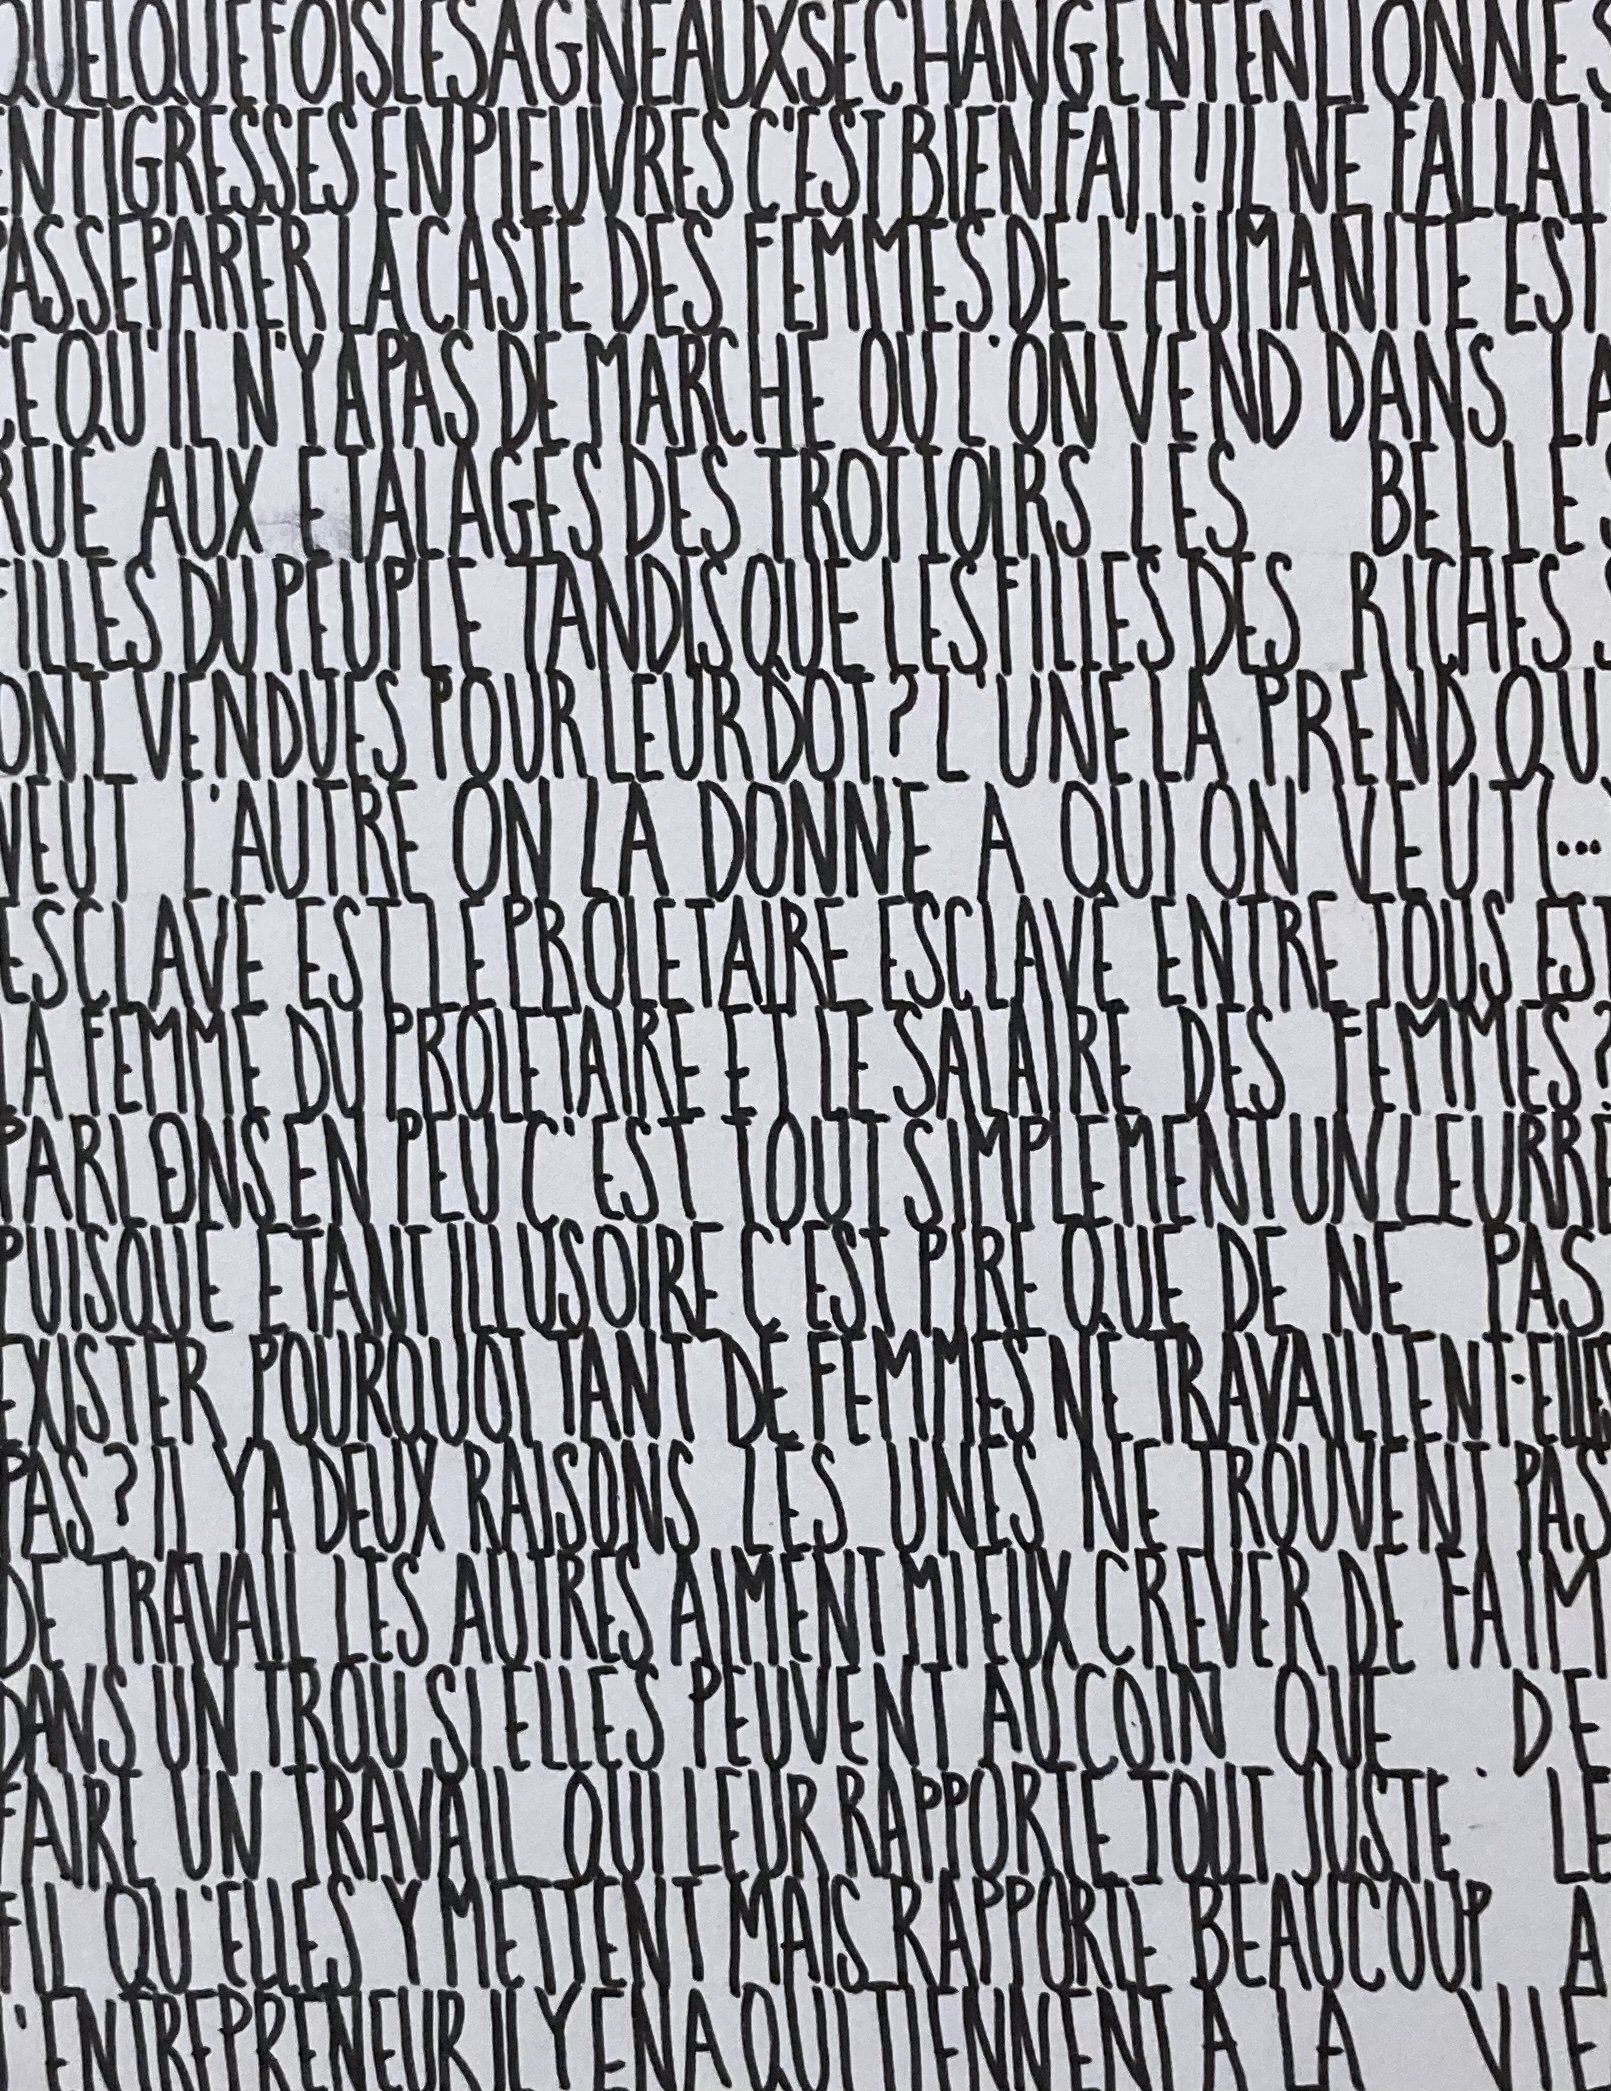 QUELQUEFOIS LES AGNEAUX SE CHANGENT EN LIONNES
EN TIGRESSES EN PIEUVRES C'EST BIEN FAIT! IL NE FALLAIT
PAS SEPARER LA CASTE DES FEMMES DE L'HUMANITE EST
CE QU'IL N'Y A PAS DE MARCHE OU L'ON VEND DANS LA
RUE AUX ETALAGES DES TROTTOIRS LES BELLES
FILLES DU PEUPLE TANDIS QUE LES FILLES DES RICHES S
ONT VENDUES POUR LEUR DOT? L'UNE LA PREND QUI
VEUT L'AUTRE ON LA DONNE A QUI ON VEUT (...
ESCLAVE EST LE PROLETAIRE ESCLAVE ENTRE TOUS EST
LA FEMME DU PROLETAIRE ET LE SALAIRE DES FEMMES?
PARLONS EN PEU C'EST TOUT SIMPLEMENT UN LEURRE
PUISQUE ETANT ILLUSOIRE C'EST PIRE QUE DE NE PAS
EXISTER POURQUOI TANT DE FEMMES NE TRAVAILLENT-ELLES
PAS? IL Y A DEUX RAISONS LES UNES NE TROUVENT PAS
DE TRAVAIL LES AUTRES AIMENT MIEUX CREVER DE FAIM
DANS UN TROU SI ELLES PEUVENT AU COIN QUE DE
FAIRE UN TRAVAIL QUI LEUR RAPPORTE TOUT JUSTE LE
FIL QU'ELLES Y METTENT MAIS RAPPORTE BEAUCOUP A
L'ENTREPRENEUR IL Y EN A QUI TIENNENT A LA VIE